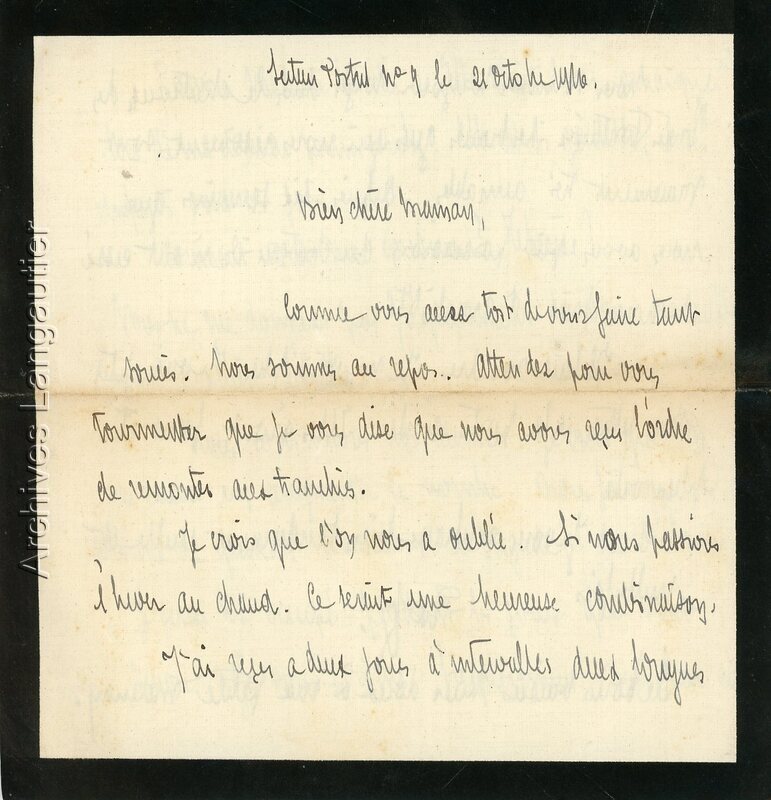 Secteur Postal no 9 le 21 Octobre 1916.
Bien chère Maman,
Comme vous avez tort de vous faire tant
soucis. Nous sommes au repos. Attendez pour vous
tourmenter que je vous dise que nous avons reçu l'ordre
de remonter aux tranchés.
Je crois que l'on nous a oublié. Si nous passions
l'hiver au chaud. Ce serait une heureuse combinaison.
J'ai reçu a deux jours à intervalles deux longues
Archives Langautier